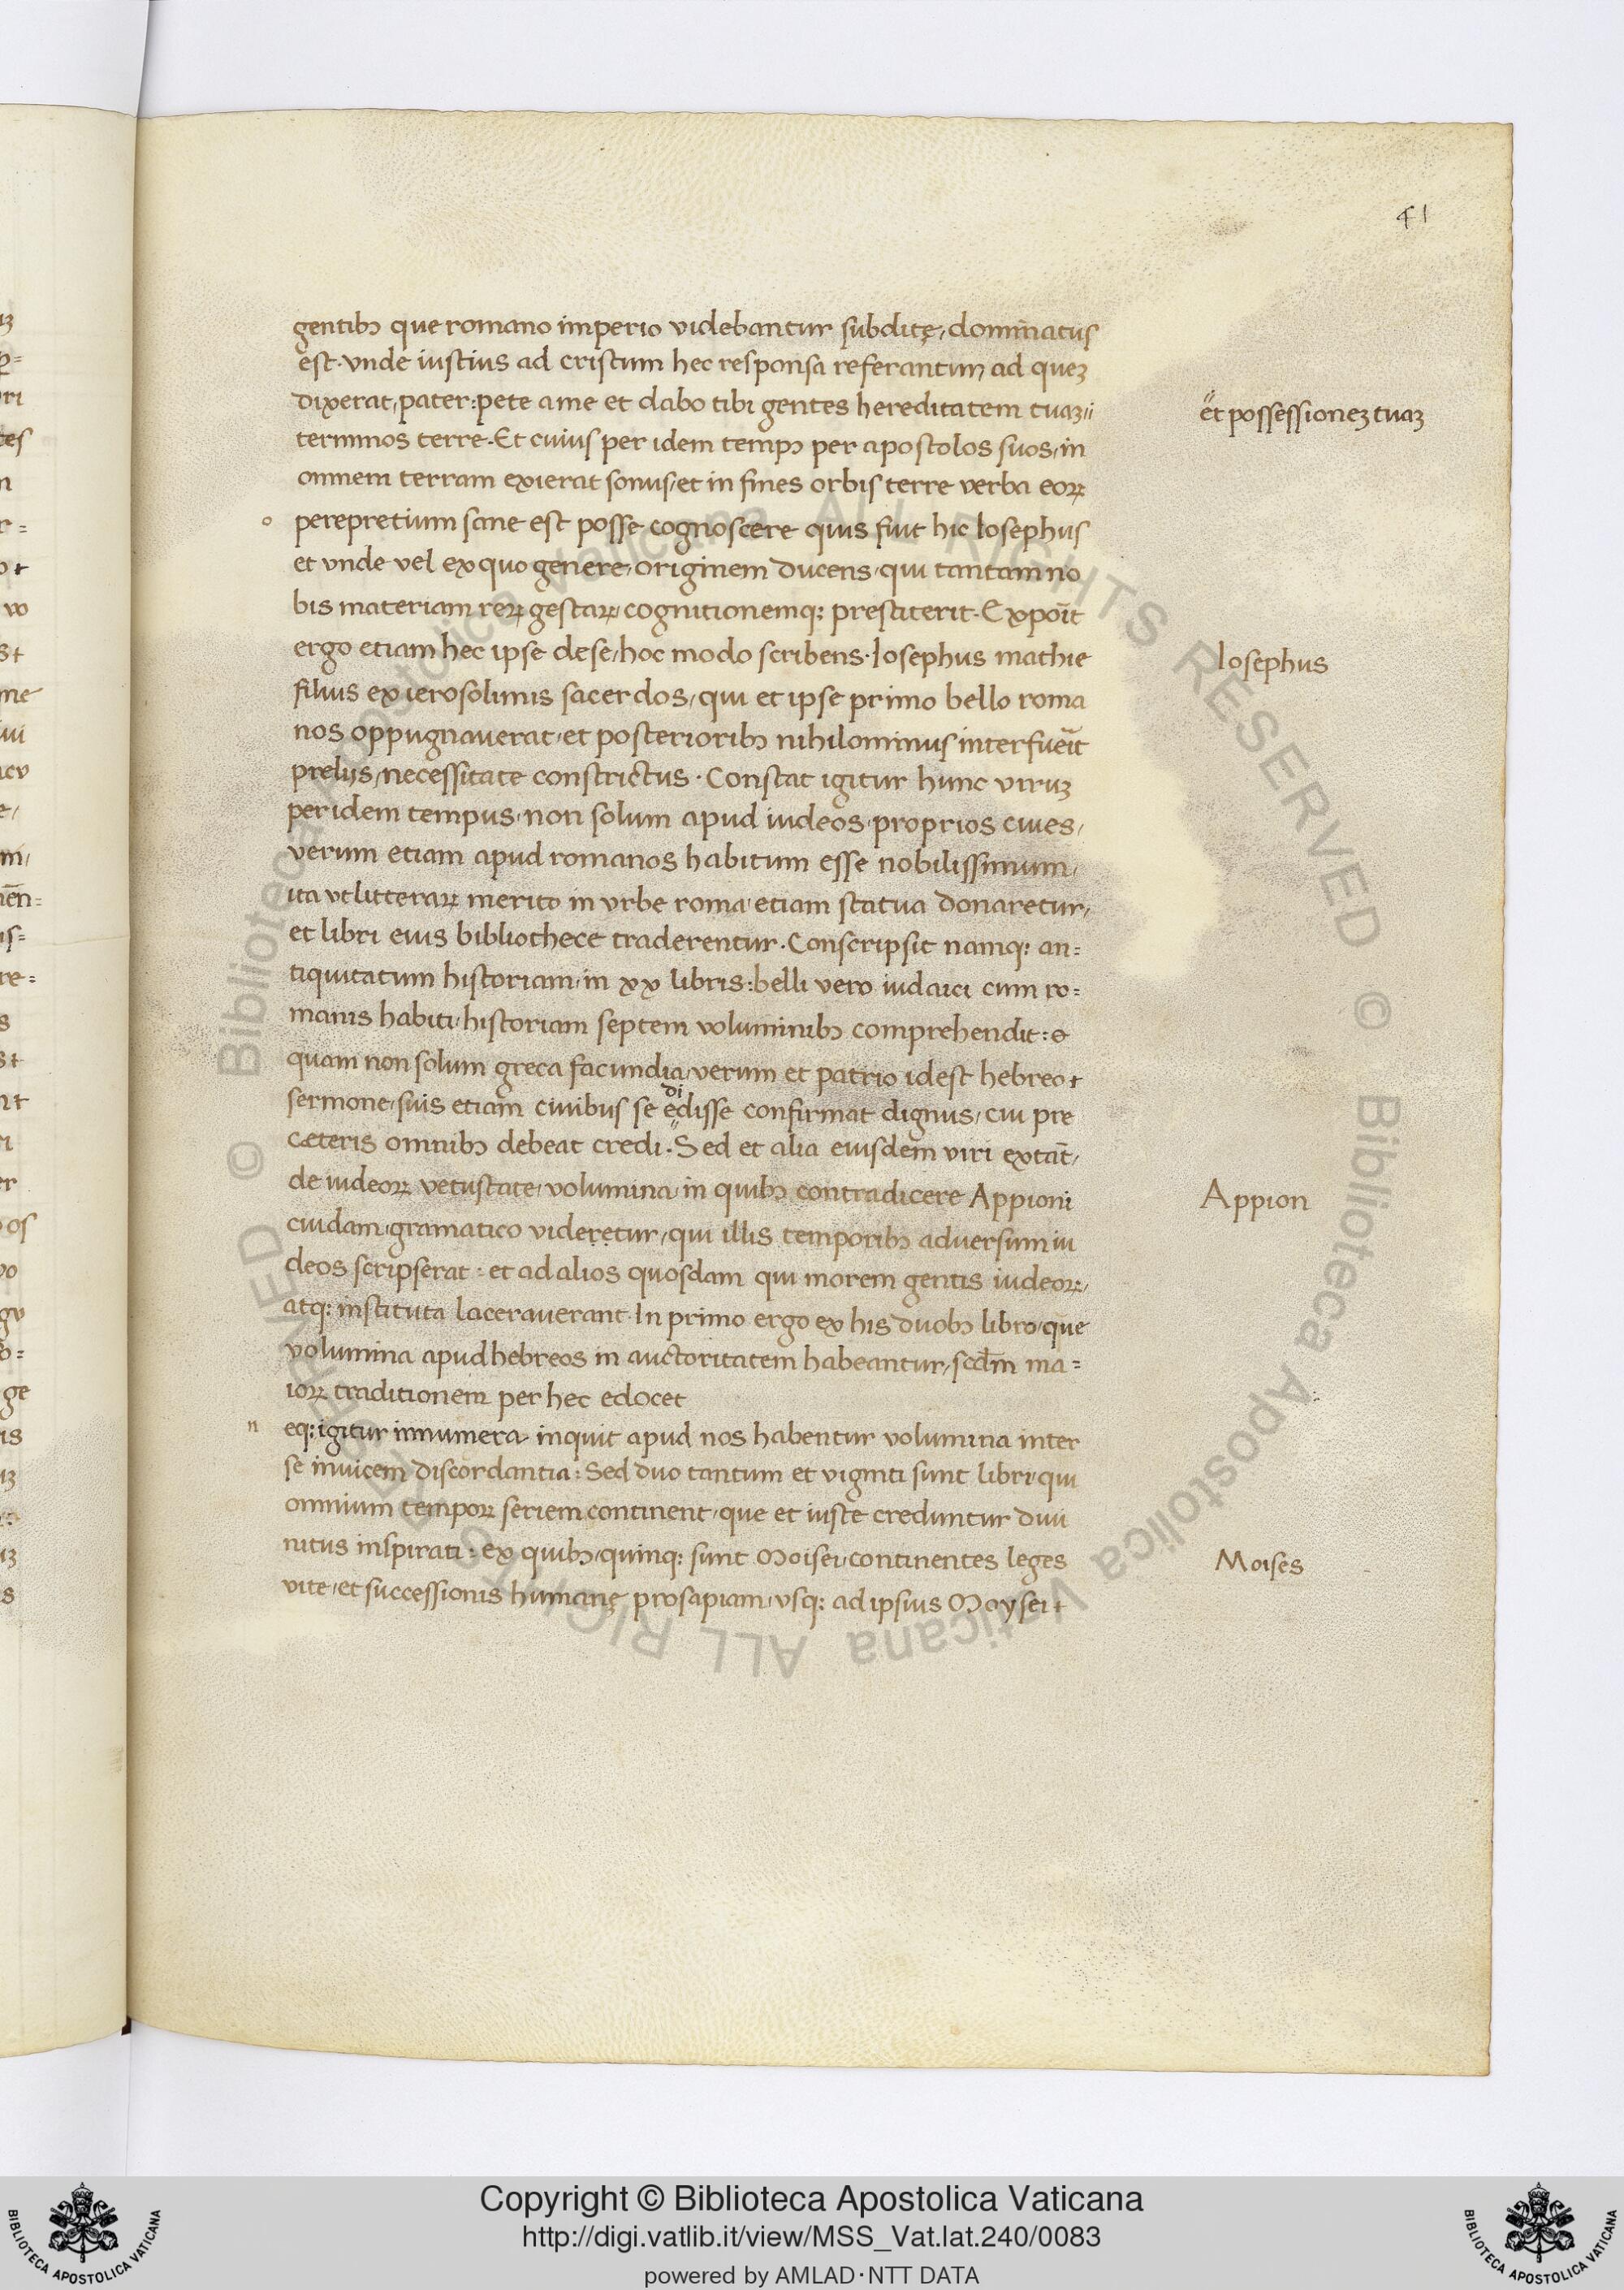 41
gentibꝫ que romano imperio videbantur subditę, dominatus
est. vnde iustius ad cristum hec responsa referantur, ad queꝫ
dixerat, pater: pete a me et dabo tibi gentes hereditatem tuaꝫ ̎
et possessioneꝫ tuaꝫ
terminos terre. Et cuius per idem tempꝫ per apostolos suos, in
omnem terram exierat sonus, et in fines orbis terre verba eoꝝ
o perepretium sane est posse cognoscere quis fuit hic Iosephus
et vnde vel ex quo genere, originem ducens, qui tantam no
bis materiam reꝝ gestaꝝ, cognitionemq: prestiterit. Expoīt
ergo etiam hec ipse de se, hoc modo scribens. Iosephus mathie
Iosephus
filius ex ierosolimis sacerdos, qui et ipse primo bello roma
nos oppugnauerat, et posterioribꝫ nihilominus interfueīt
prelijs, necessitate constrictus. Constat igitur hunc viruꝫ
per idem tempus, non solum apud iudeos, proprios ciues,
verum etiam apud romanos habitum esse nobilissimum,
ita vt litteraꝝ merito in vrbe roma etiam statua donaretur,
et libri eius bibliothece traderentur. Conscripsit namq: an=
tiquitatum historiam, in xx libris: belli vero iudaici cum ro=
manis habiti, historiam septem voluminibꝫ comprehendit: &
quam non solum greca facundia, verum et patrio idest hebreo
sermone, suis etiam ciuibus se edisse confirmat dignus, cui pre
di
cæteris omnibꝫ debeat credi. Sed et alia eiusdem viri extāt,
de iudeoꝝ vetustate, volumina, in quibꝫ contradicere Appioni
Appion
cuidam gramatico videretur, qui illis temporibꝫ adversum iu
deos scripserat: et ad alios quosdam qui morem gentis iudeoꝝ,
atq: instituta lacerauerant. In primo ergo ex his duobꝫ libro, que
volumina apud hebreos in auctoritatem habeantur, scd̄m ma=
ioꝝ traditionem per hec edocet
n eq: igitur innumera inquit apud nos habentur volumina inter
se inuicem discordantia: Sed duo tantum et viginti sunt libri, qui
omnium tempoꝝ seriem continent, que et iuste creduntur diui
nitus inspirati: ex quibꝫ, quinq: sunt Moisei, continentes leges
Moises
vite, et successionis humanę prosapiam, vsq: ad ipsius Moysei
Copyright © Biblioteca Apostolica Vaticana
http://digi.vatlib.it/view/MSS_Vat.lat.240/0083
powered by AMLAD·NTT DATA
BIBLIOTECA APOSTOLICA VATICANA
BIBLIOTECA APOSTOLICA VATICANA